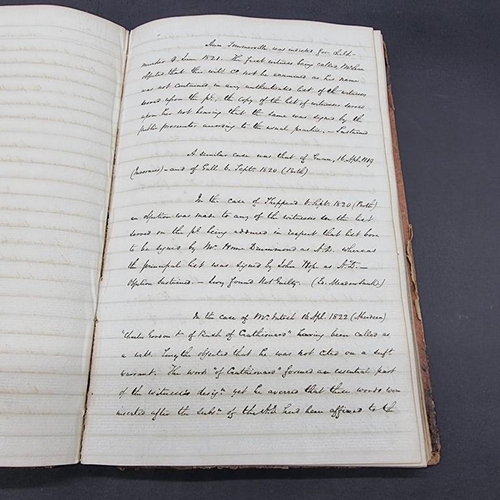 Ann Somerville was indicted for child-
murder 4 June 1821. The first witness being called,
objected that this witn. cd. not be examined as his name
was not contained in any authenticated list of the witnesses
served upon the pl., the copy of the list of witnesses served
upon her not bearing that the same was signed by the
public prosecutor according to the usual practice. — Sustained
A similar case was that of 16 Apl. 1819
(Inverness) — and of Gall 6. Septr. 1820. (Perth)
In the case of Sheppard 6. Septr. 1820 (Perth)
an objection was made to any of the witnesses in the list
served on the pl. being adduced in respect that list bore
to be signed by Mr. Home Drummond as A.D. whereas
the principal list was signed by John Hope as A.D. —
Objection Sustained. — Jury found Not Guilty. (Ld. Meadowbank)
In the case of McIntosh 16 Apl. 1822 (Aberdeen)
"Charles Gordon of Cruthionars" having been called as
a witn. objected that he was not cited on a sufft.
warrant. The words "of Cruthionars" formed an essential part
of the witness's design. yet he averred that these words were
inserted after the of the had been affixed to the